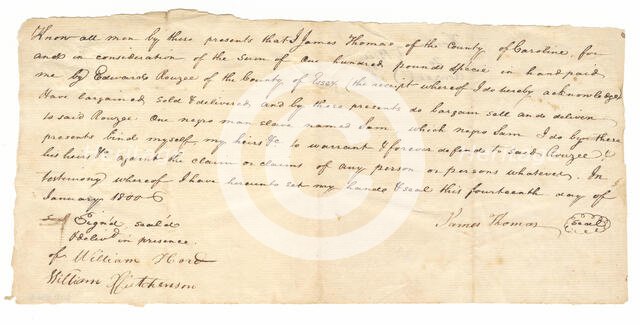 Know all men by these presents that I James Thomas of the County of Caroline for
and in consideration of the Sum of One hundred pounds specie in hand paid
me by Edward Rouzee of the County of Essex (the receipt whereof I do hereby acknowledge)
Have bargained Sold & delivered and by these presents do bargain sell and deliver
to said Rouzee One negro man slave named Sam which negro Sam I do by these
presents bind myself, my heirs &c to warrant & forever defend to said Rouzee &
his heirs &c against the claim or claims of any person or persons whatever. In
testimony whereof I have hereunto set my hand & seal this fourteenth day of
January 1800
Sign'd seal'd
& deliv'd in presence
of William Hord
William Hutchenson
James Thomas
Seal